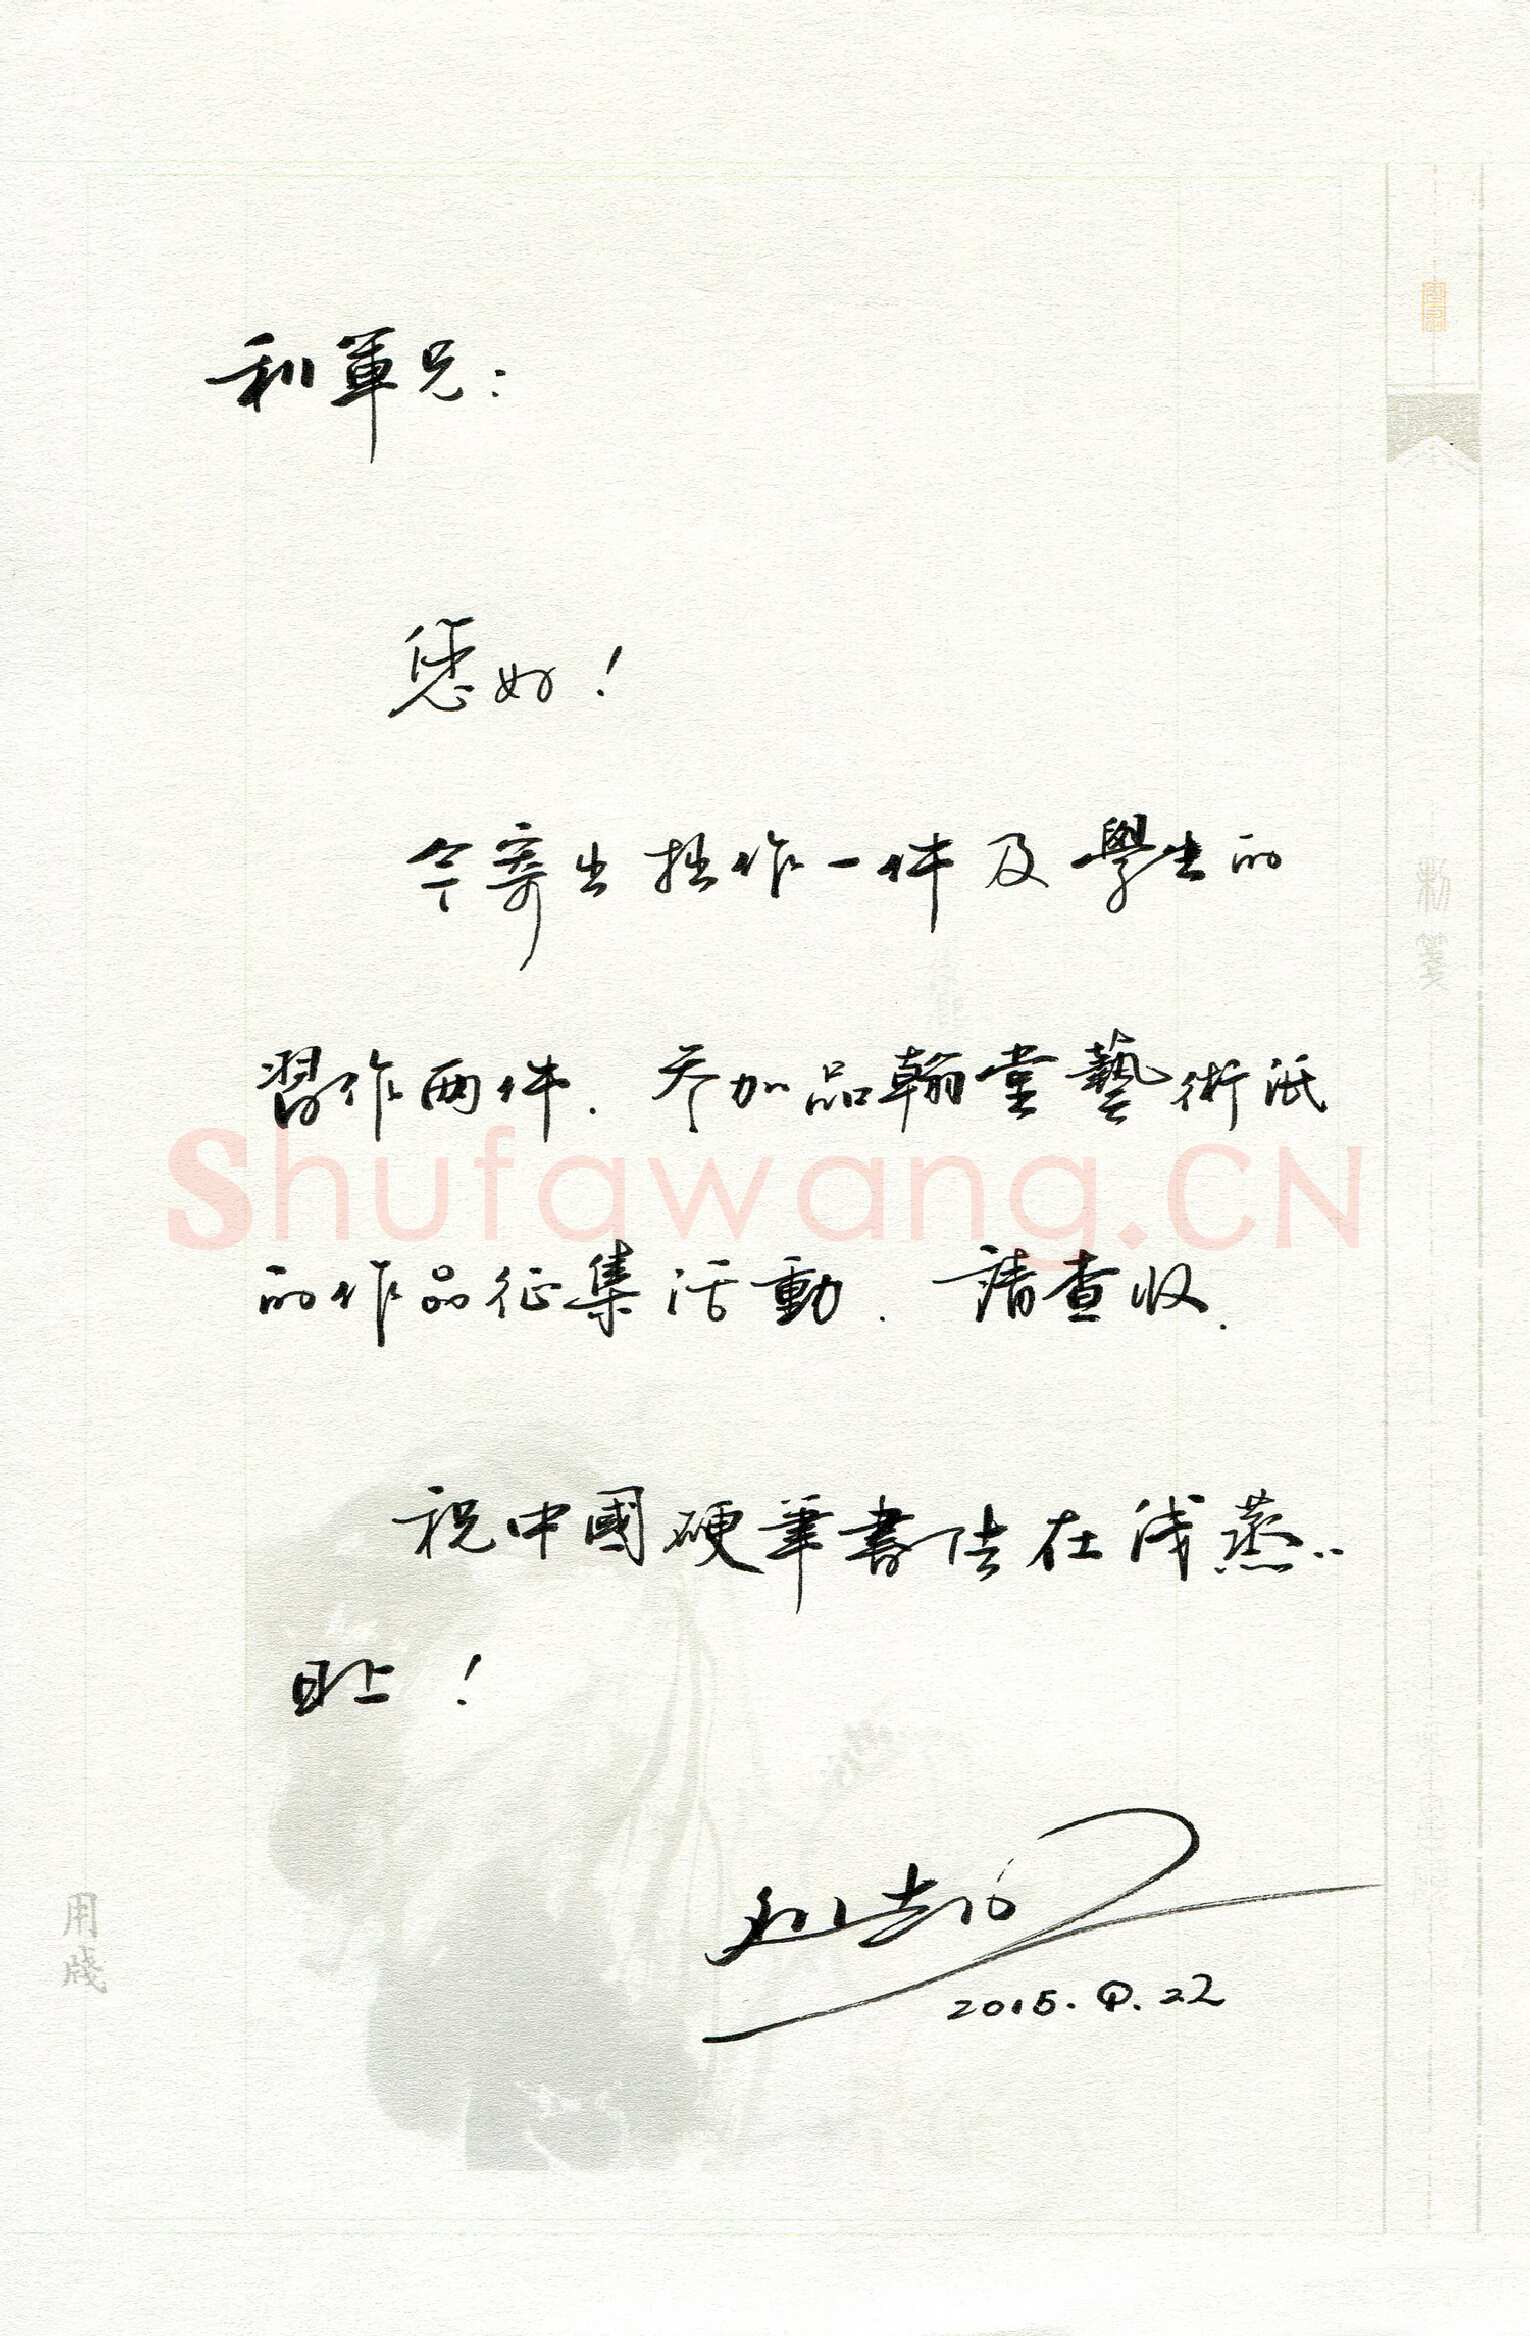 利軍兄：
您好！
今寄出拙作一件及學生的
習作兩件．参加品翰堂藝術派
的作品征集活動．請查收．
祝中國硬筆書法在线蒸︰
日上！
2015.9.22
Shufawang.CN
用牋